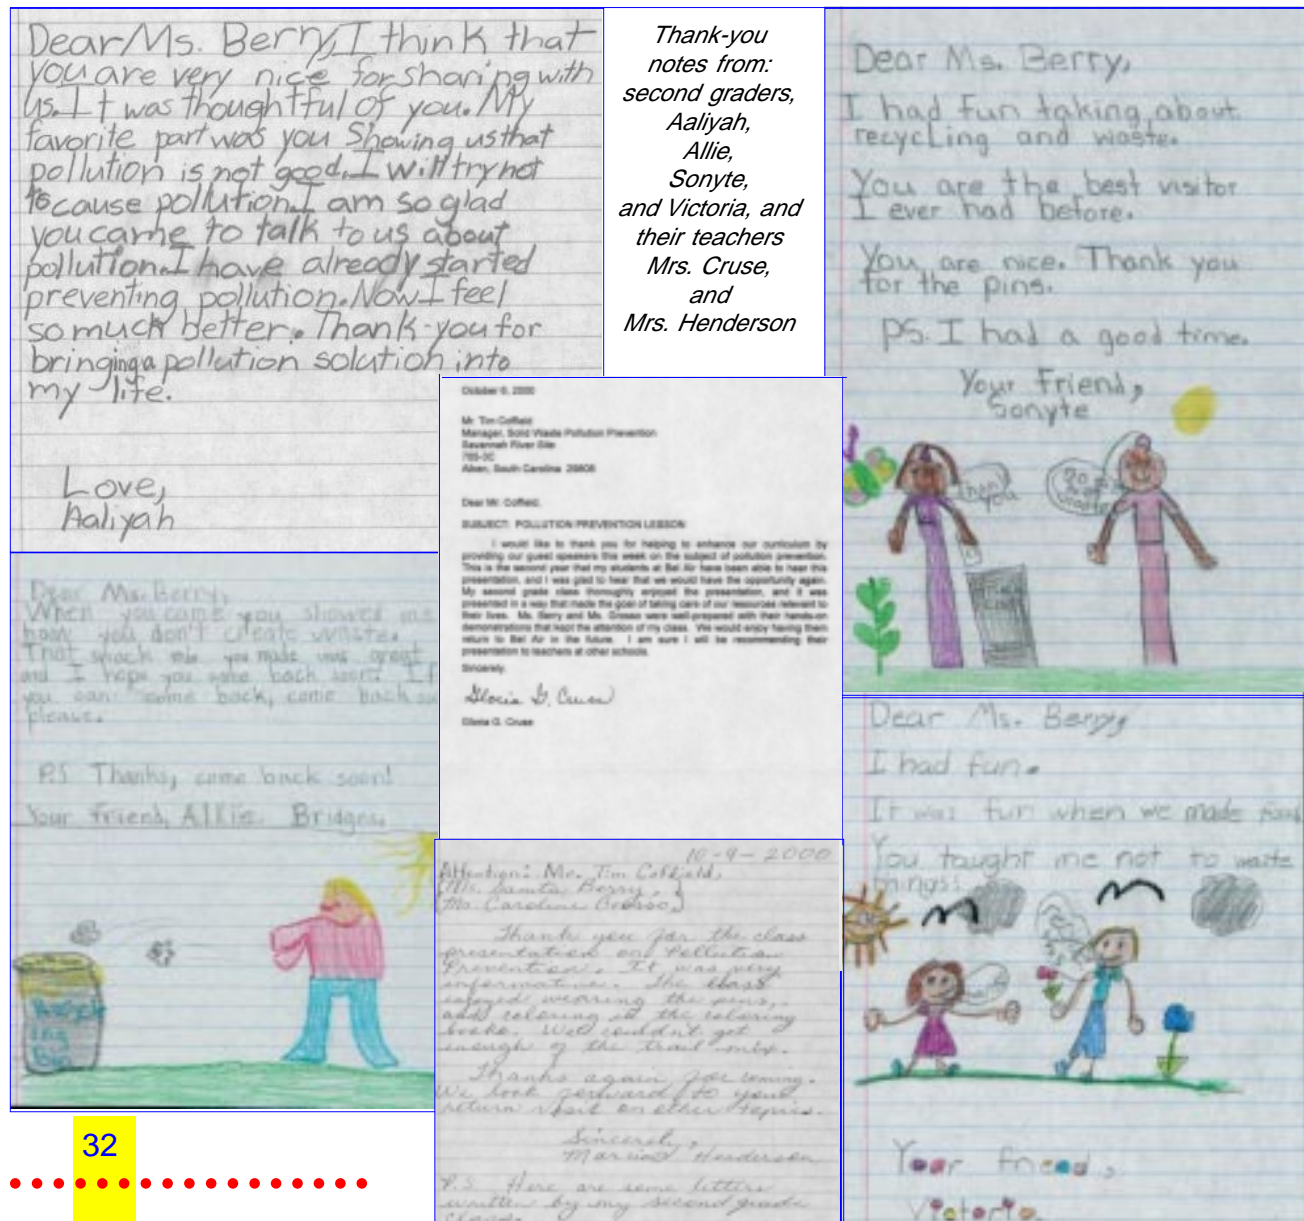 Dear Ms. Berry, I think that
you are very nice for sharing with
us. It was thoughtful of you. My
favorite part was you Showing us that
pollution is not good. I will try not
to cause pollution. I am so glad
you came to talk to us about
pollution. I have already started
preventing pollution. Now I feel
so much better. Thank-you for
bringing a pollution solution into
my life.
Love,
Aaliyah
Thank-you
notes from:
second graders,
Aaliyah,
Allie,
Sonyte,
and Victoria, and
their teachers
Mrs. Cruse,
and
Mrs. Henderson
Dear Ms. Berry,
I had fun taking about
recycling and waste.
You are the best visitor
I ever had before.
You are nice. Thank you
for the pins.
PS. I had a good time.
Your Friend,
Sonyte
Thank
you
October 6, 2000
Mr. Tim Coffield
Manager, Solid Waste Pollution Prevention
Savannah River Site
Aiken, South Carolina 29808
Dear Mr. Coffield,
SUBJECT: POLLUTION PREVENTION LESSON
I would like to thank you for helping to enhance our curriculum by
providing our guest speakers this week on the subject of pollution prevention.
This is the second year that my students at Bel Air have been able to hear this
presentation, and I was glad to hear that we would have the opportunity again.
My second grade class thoroughly enjoyed the presentation, and it was
presented in a way that made the goal of taking care of our resources relevant to
their lives. Ms. Berry and Ms. Grosso were well-prepared with their hands-on
demonstrations that kept the attention of my class. We would enjoy having them
return to Bel Air in the future. I am sure I will be recommending their
presentation to teachers at other schools.
Sincerely,
Gloria G. Cruse
Gloria G. Cruse
Dear Ms. Berry,
When you came you showed me
how you don't create waste.
That snack mix you made was great
and I hope you come back soon. If
you can come back, come back
please.
P.S. Thanks, come back soon!
Your friend, Allie Bridges
Recycl
ing
Bin
10-9-2000
Attention: Mr. Tim Coffield,
Ms. Santa Berry,
Ms. Caroline Grosso,
Thank you for the class
presentation on Pollution
Prevention. It was very
informative. The class
enjoyed wearing the pins,
and coloring in the coloring
books. We couldn't get
enough of the trail mix.
Thanks again for coming.
We look forward to your
return visit on other topics.
Sincerely,
Henderson
P.S. Here are some letters
written by my second grade
class.
Dear Ms. Berry,
I had fun.
It was fun when we made food
You taught me not to waste
things.
Your friend,
Victoria
32